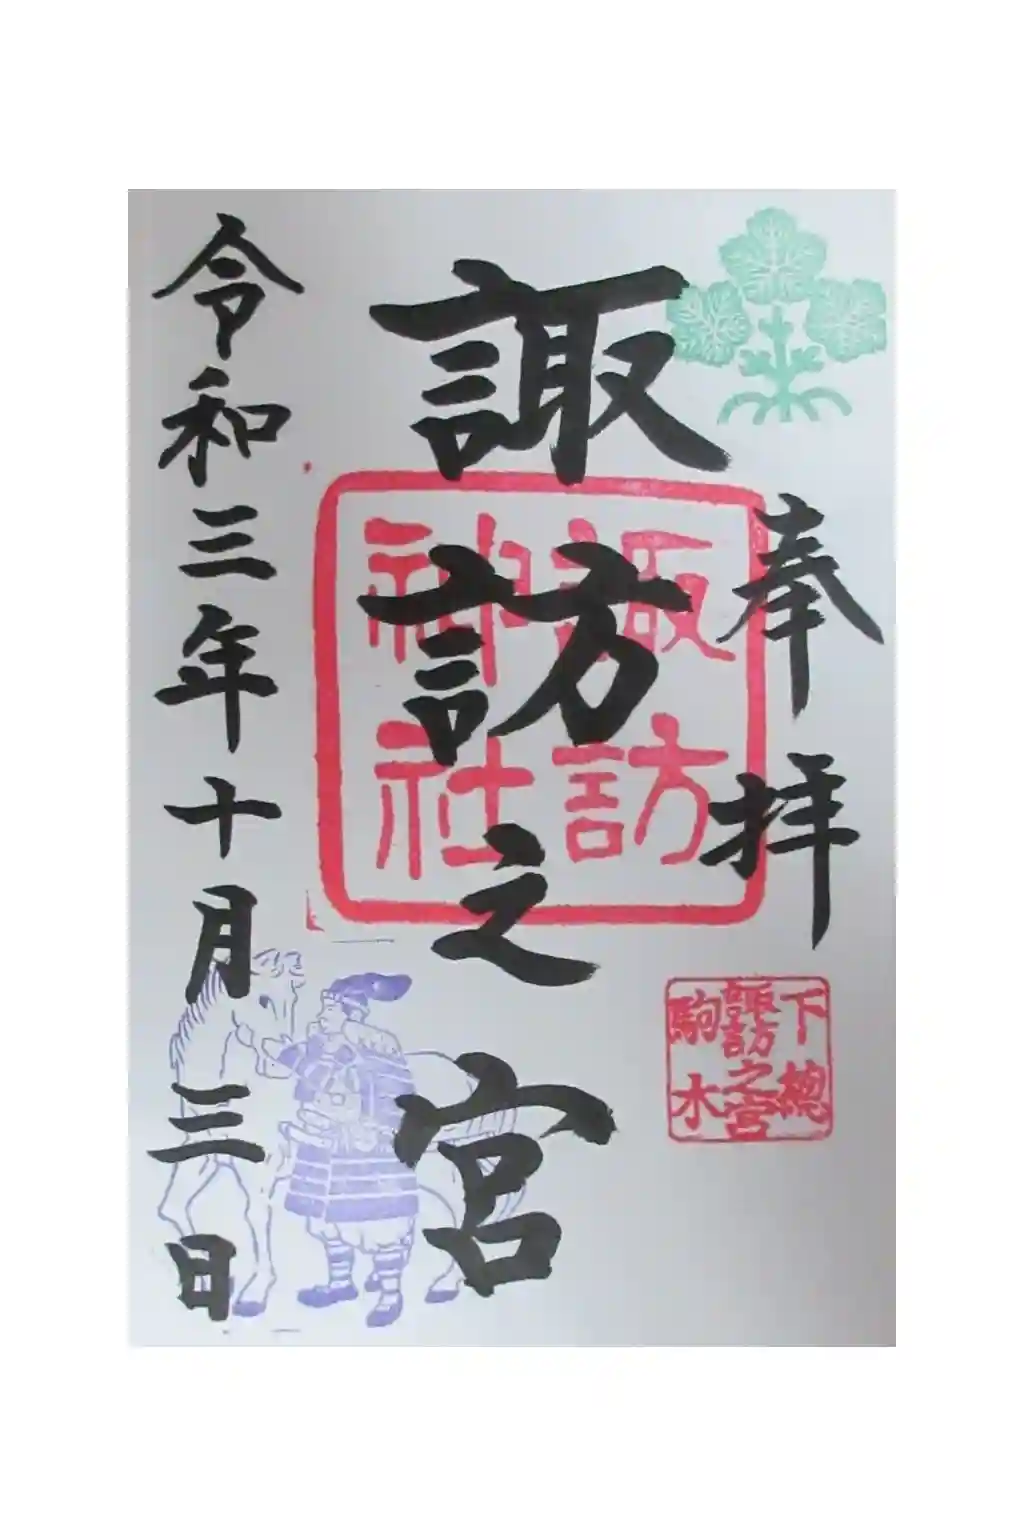 奉拝
諏訪之宮
諏訪
神社
下總
諏訪之宮
駒木
令和三年十月三日